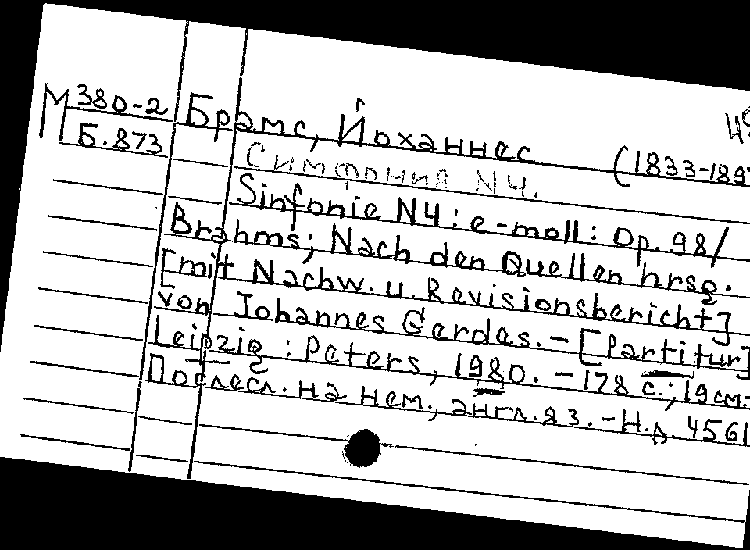 М 380-2 Брамс, Йоханнес (1833-189
Б.873
Симфония N4.
Sinfonie N4: e-moll: Op. 98/
Brahms; Nach den Quellen hrsg.
[mit Nachw. u. Revisionsbericht]
von Johannes Gerdes. - [Partitur]
Leipzig: Peters, 1980. - 178 с.; 19 см.
Послесл. на нем., англ. яз. - Н.д. 4561